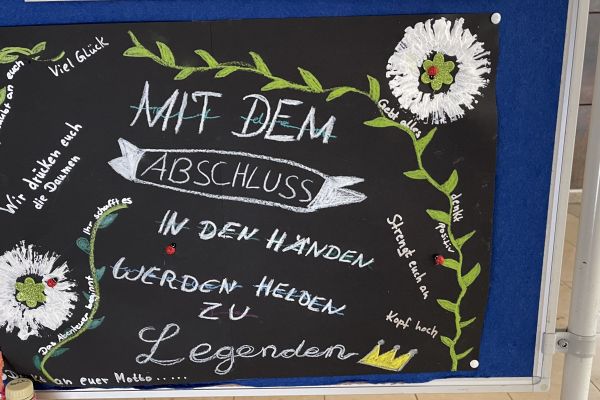 MIT DEM
ABSCHLUSS
IN DEN HÄNDEN
WERDEN HELDEN
ZU
Legenden
Viel Glück
an euch
Wir drücken euch
die Daumen
Ihr schafft es
Das Abenteuer beginnt
an euer Motto.....
Gebt alles
denkt positiv
Strengt euch an
Kopf hoch